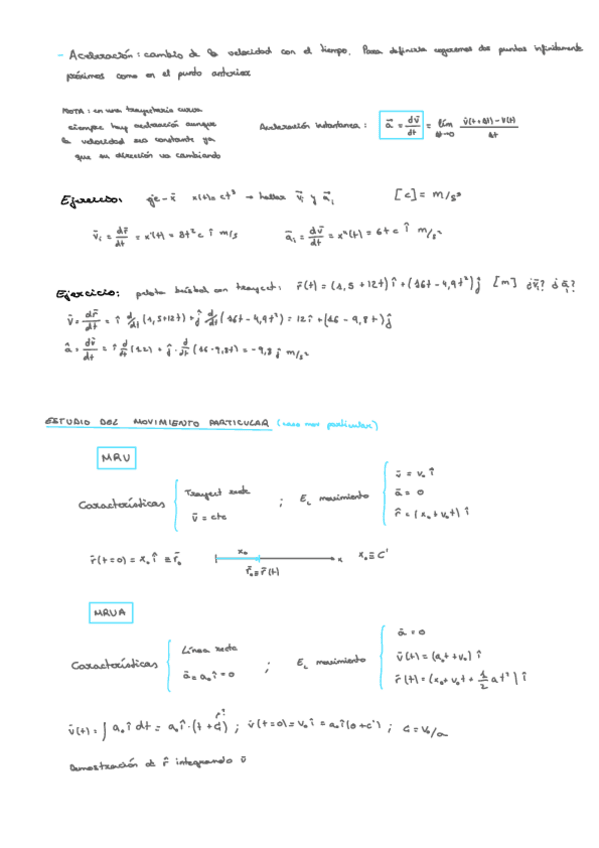 - Aceleración: cambio de la velocidad con el tiempo. Para definirla cogeremos dos puntos infinitamente
próximos como en el punto anterior
NOTA: en una trayectoria curva
siempre hay aceleración aunque
la velocidad sea constante ya
que su dirección va cambiando
Aceleración instantánea: a⃗ = dv⃗/dt = lím Δt→0 v⃗(t+Δt)-v⃗(t)/Δt
Ejercicio: eje-x̄ x(t)=ct³ → hallar v⃗i y a⃗i [c]= m/s³
v̄i = dr̄/dt = x'(t) = 3t²c î m/s
ā1 = dv̄/dt = x''(t) = 6tc î m/s²
Ejercicio: pelota beisbol con trayect: r̄(t) = (1,5+12t) î + (16t-4,9t²) ĵ [m] ¿v̄? ¿ā?
v̄ = dr̄/dt = î d/dt (1,5+12t) + ĵ d/dt (16t-4,9t²) = 12î + (16-9,8t) ĵ
ā = dv̄/dt = î d/dt (12) + ĵ · d/dt (16-9,8t) = -9,8 ĵ m/s²
ESTUDIO DEL MOVIMIENTO PARTICULAR
MRU
Características
Trayect recta
v̄ = cte
; EL movimiento
v̄ = v₀ î
ā = 0
r̄ = (x₀ + v₀t) î
r̄(t=0) = x₀ î ≡ r̄₀
x₀
x
r̄₀ ≡ r̄(t)
x₀ ≡ C'
MRUA
Características
Línea recta
ā = a₀ î = 0
; EL movimiento
ā = 0
v̄(t) = (a₀t + v₀) î
r̄(t) = (x₀ + v₀t + 1/2 at²) î
v̄(t) = ∫ a₀ î dt = a₀ î · (t + C) ; v̄(t=0) = v₀ î = a₀ î (0+c') ; C = v₀/a
Demostración de r̄ integrando v̄